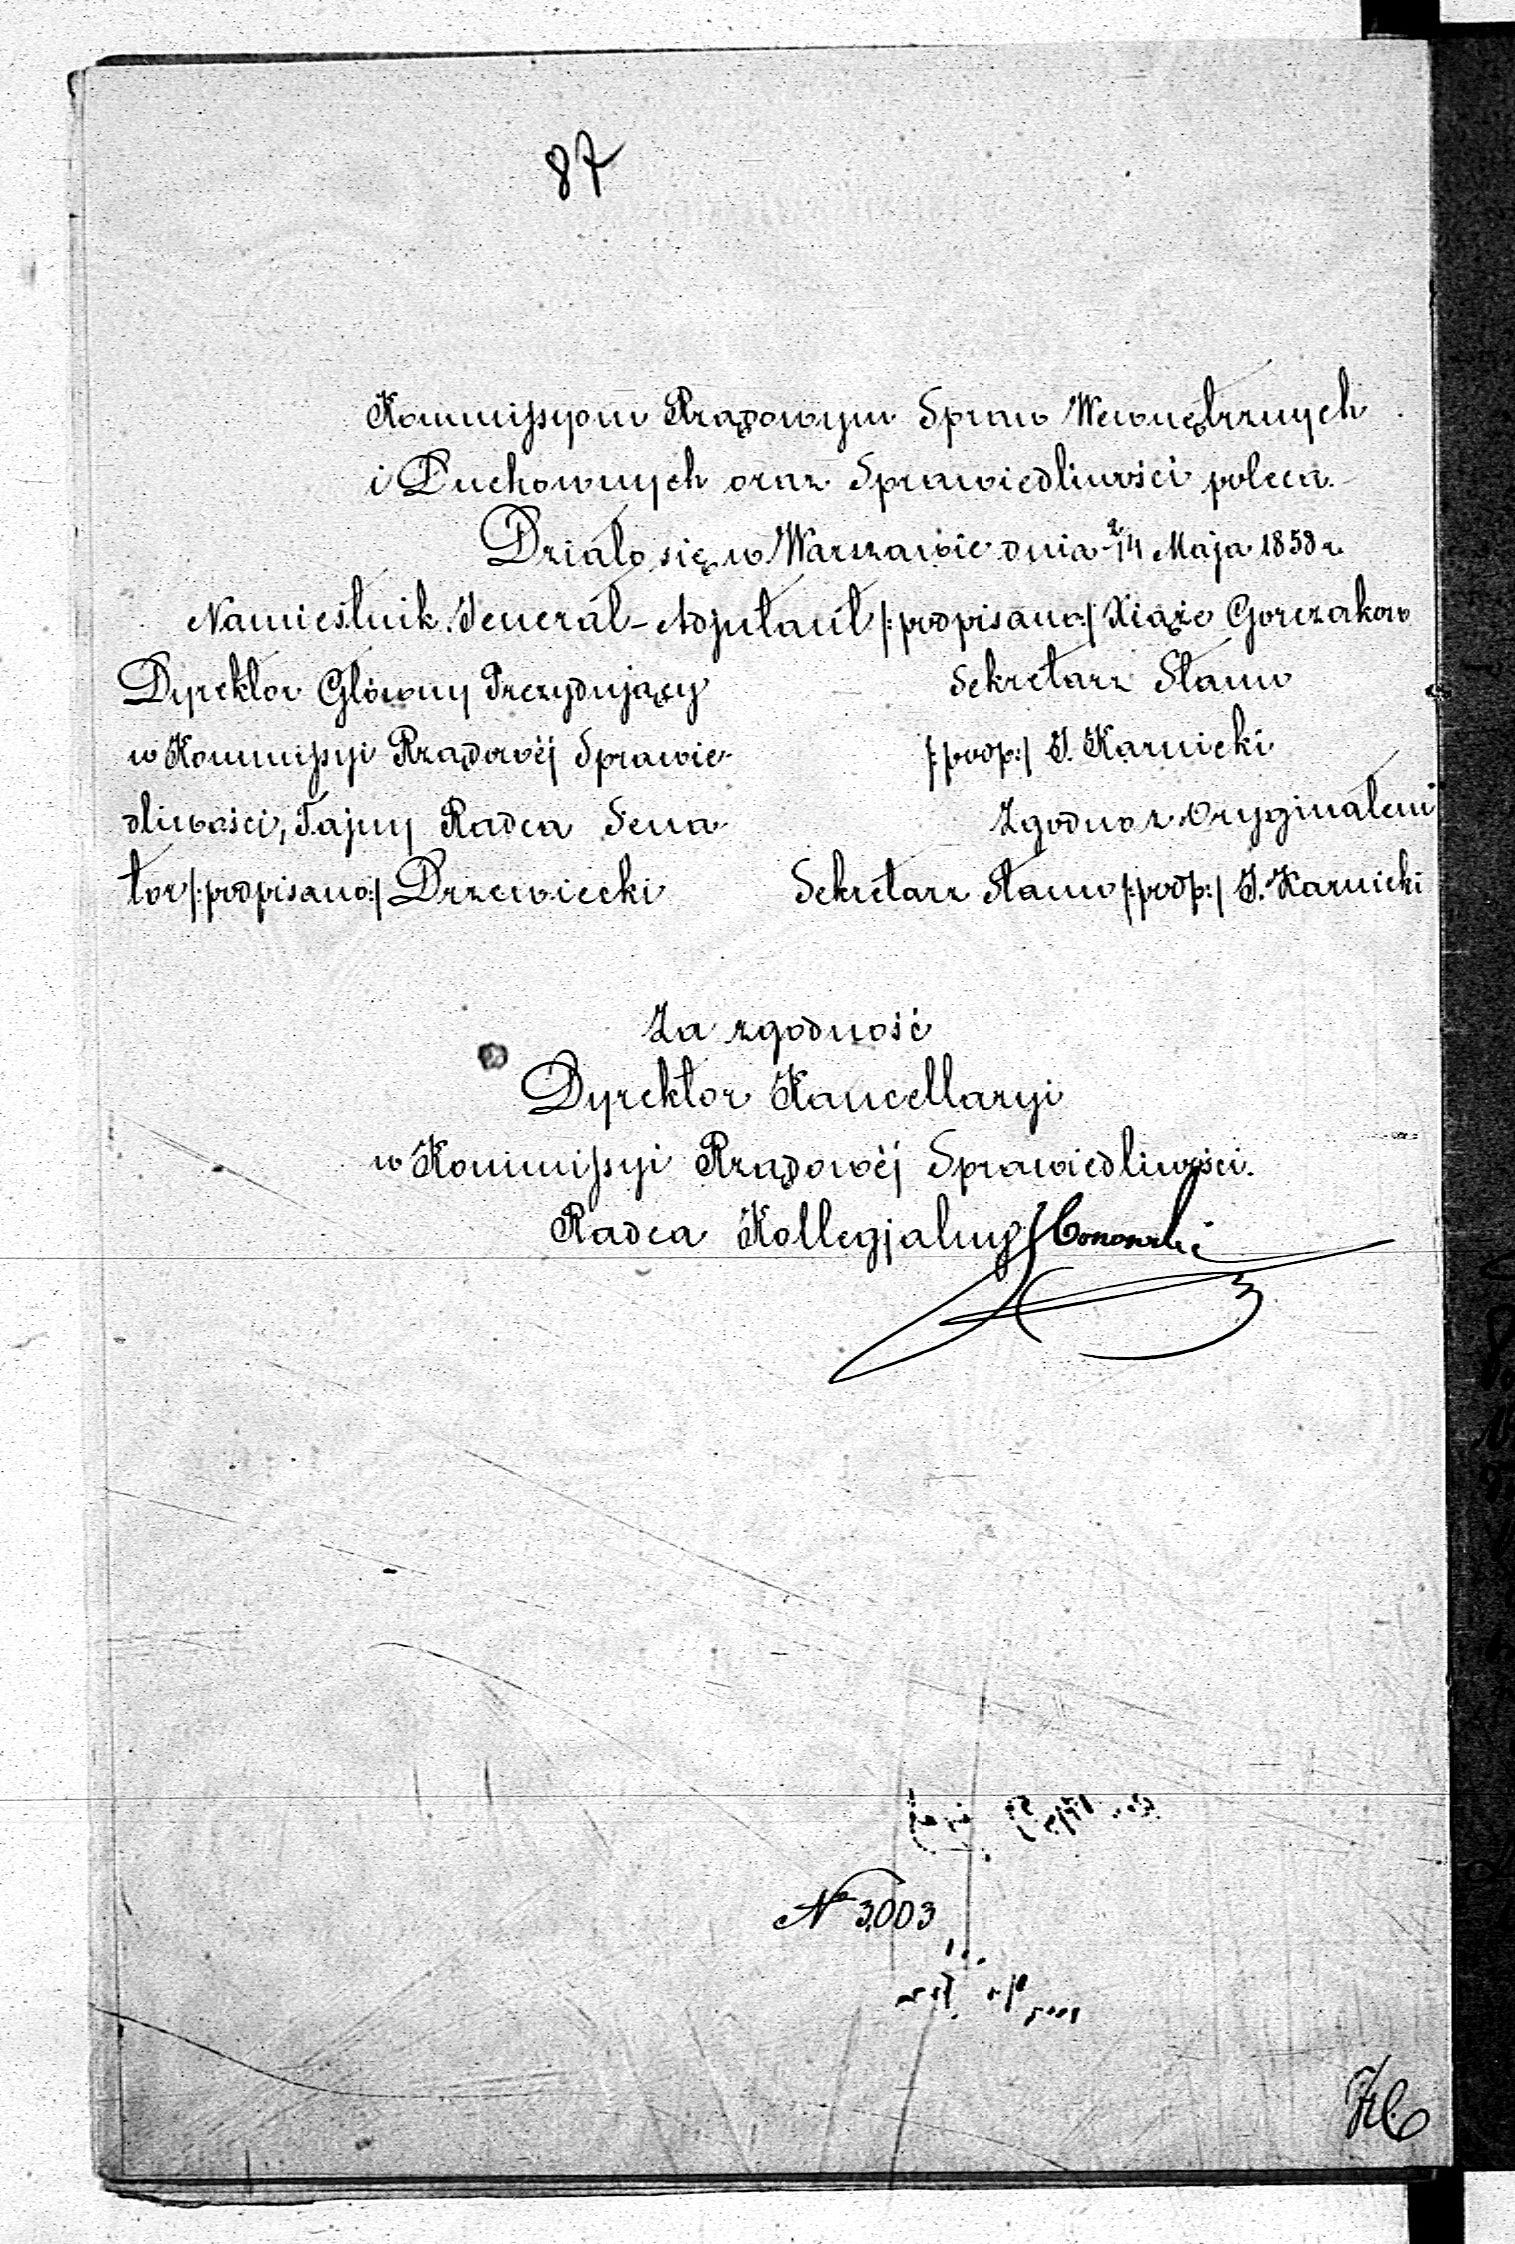 87
Kommissyom Rządowym Spraw Wewnętrznych
i Duchownych oraz Sprawiedliwości poleca.
Działo się w Warszawie dnia 2/14 Maja 1858 r.
Namiestnik Jenerał-Adjutant /:podpisano:/ Xiąże Gorczakow
Dyrektor Główny Prezydujący
w Kommissyi Rządowéj Sprawie-
dliwości, Tajny Radca Sena-
tor /:podpisano:/ Drzewiecki
Sekretarz Stanu
/:podp:/ J. Karnicki
Zgodno z Oryginałem
Sekretarz Stanu /:podp:/ J. Karnicki
Za zgodność
Dyrektor Kancellaryi
w Kommissyi Rządowéj Sprawiedliwości.
Radca Kollegjalny
No 3003